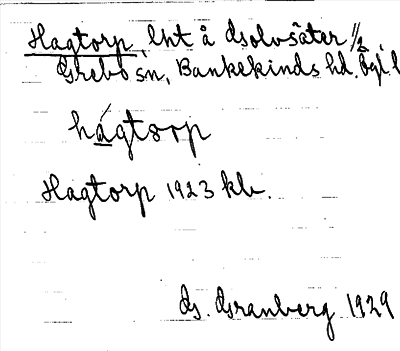 Hagtorp, lht å Solvsäter 1/2,
Grebo sn, Bankekinds hd. Ögl.
hágtorp
Hagtorp 1923 kb.
G. Granberg 1929